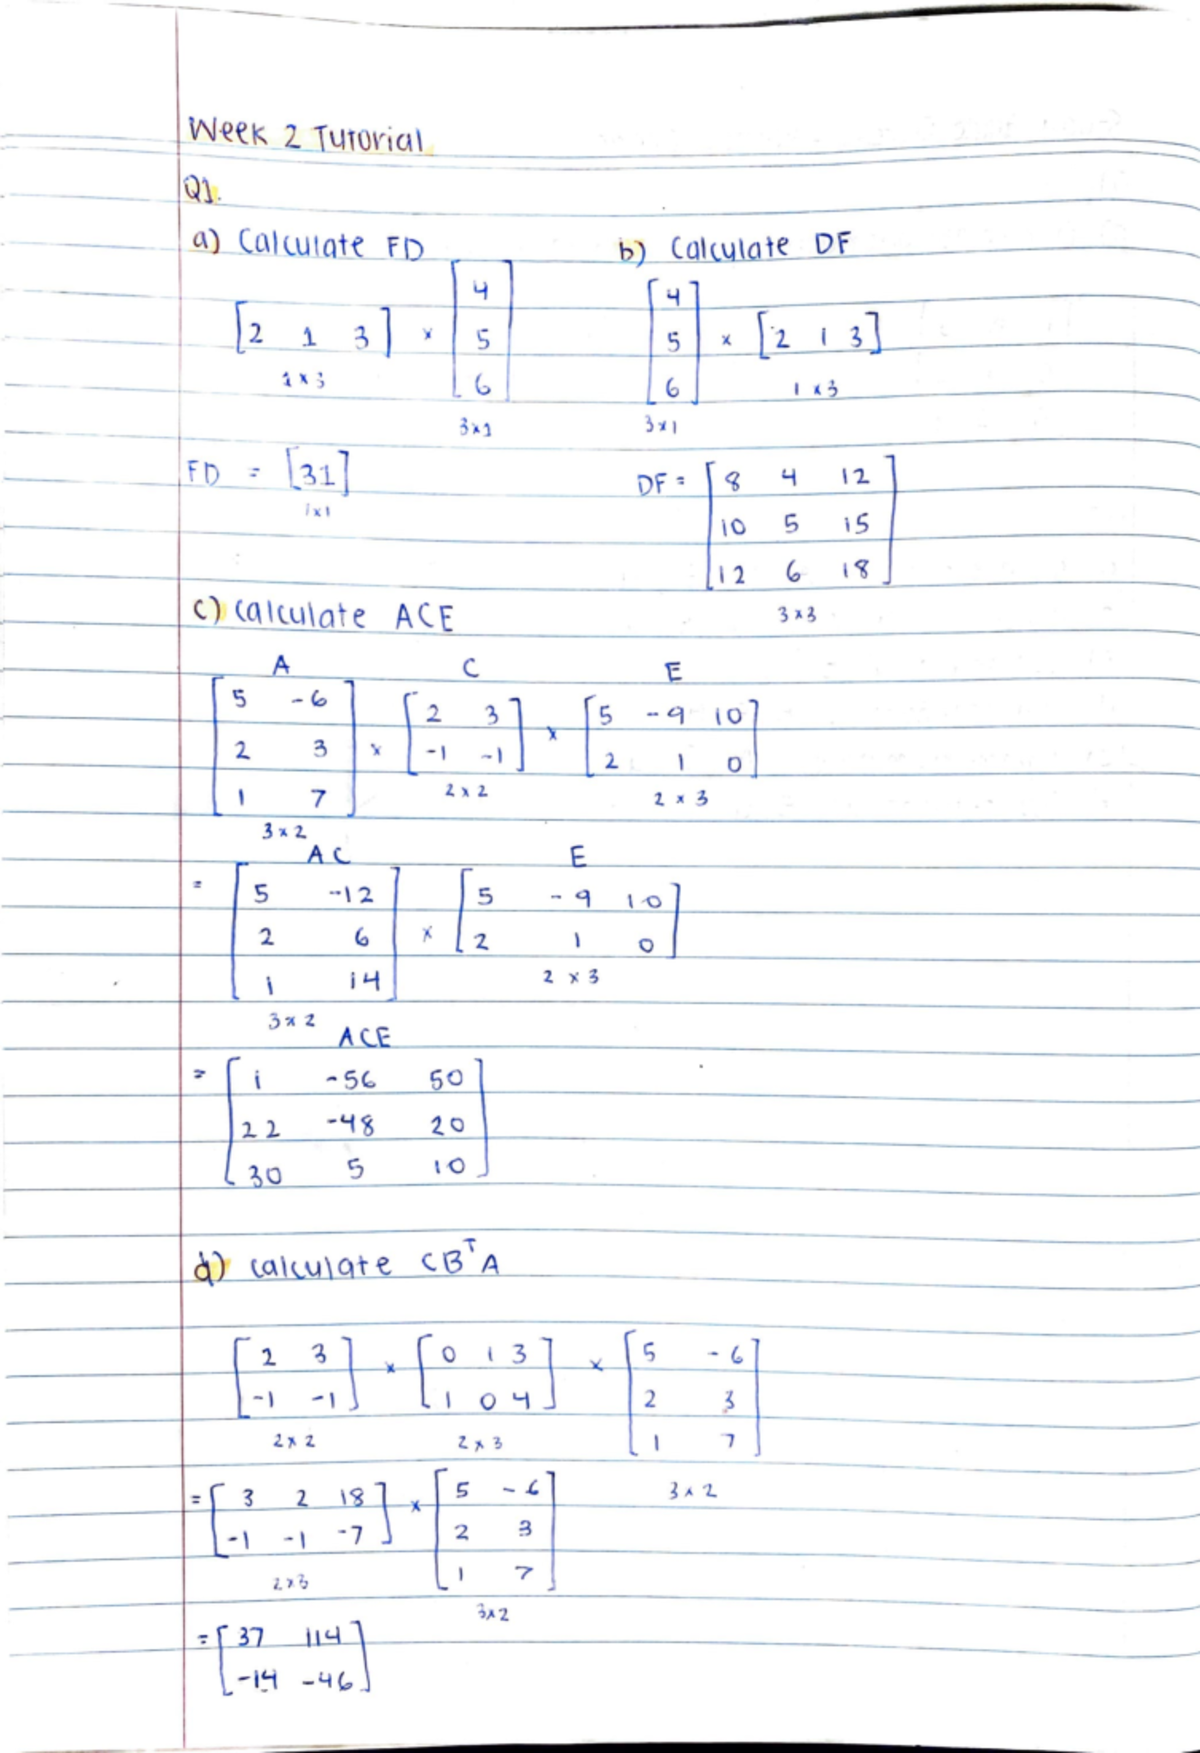 Week 2 Tutorial
Q1.
a) Calculate FD
[2 1 3] × [4
5
6]
1×3
3×1
FD = [31]
1×1
b) Calculate DF
[4
5
6] × [2 1 3]
3×1
1×3
DF = [8 4 12
10 5 15
12 6 18]
3×3
c) Calculate ACE
A C E
[5 -6
2 3
1 7] × [2 3
-1 -1] × [5 -9 10
2 1 0]
3×2
2×2
2×3
AC E
= [5 -12
2 6
1 14] × [5 -9 10
2 1 0]
3×2
2×3
ACE
= [1 -56 50
22 -48 20
30 5 10]
d) calculate CBᵀA
[2 3
-1 -1] × [0 1 3
1 0 4] × [5 -6
2 3
1 7]
2×2
2×3
3×2
= [3 2 18
-1 -1 -7] × [5 -6
2 3
1 7]
2×3
3×2
= [37 114
-14 -46]